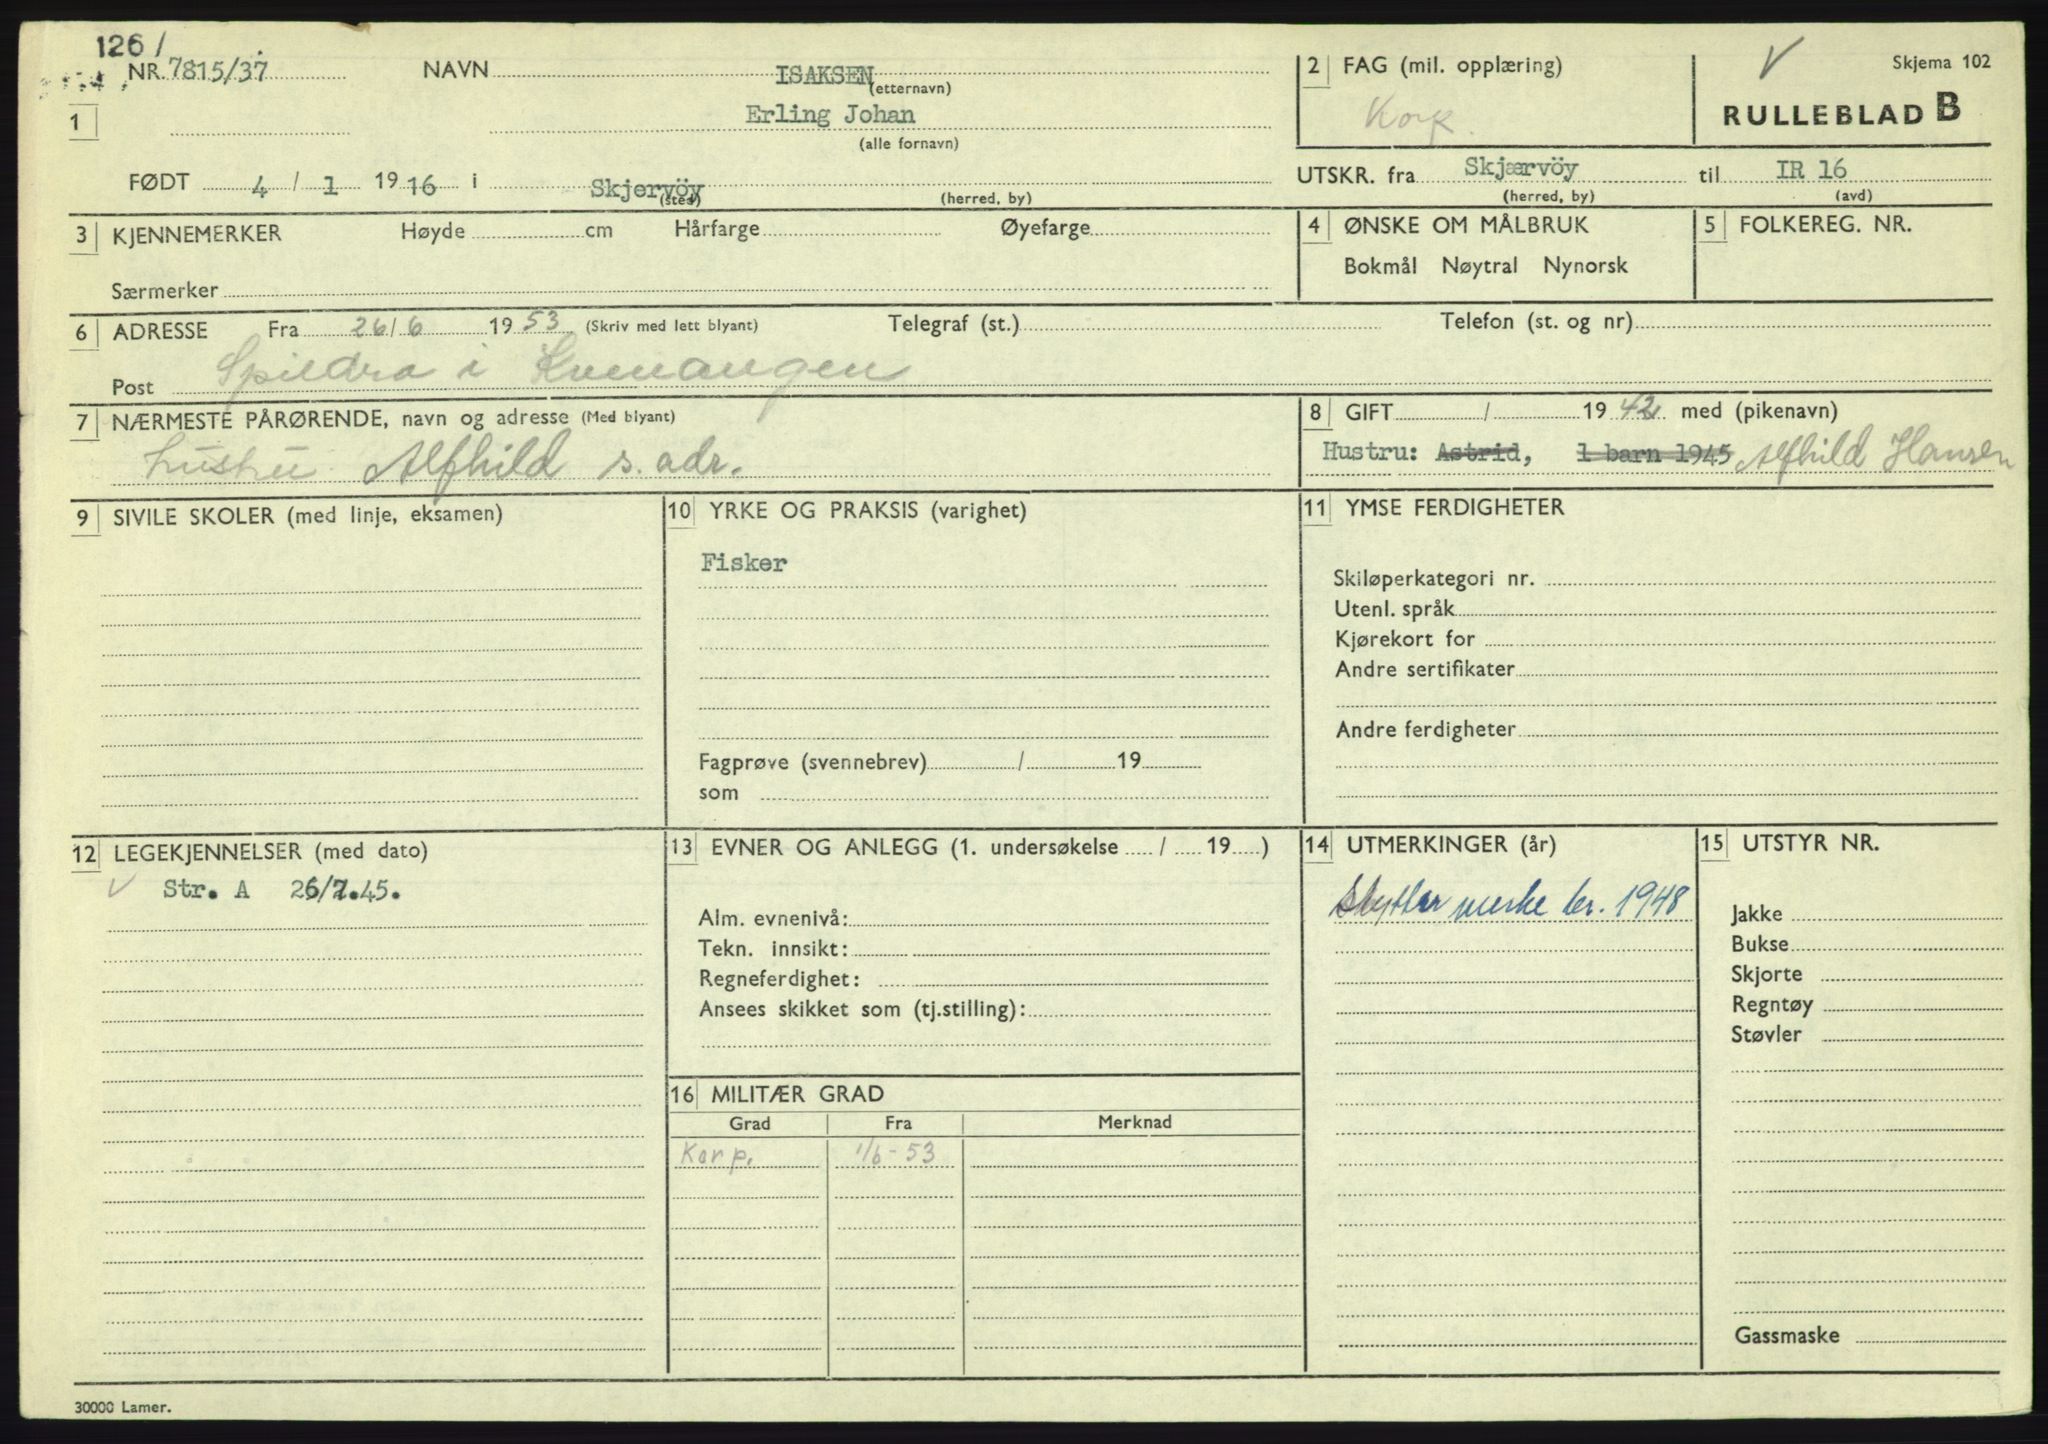 126/
NR. 7815/37 NAVN ISAKSEN
(etternavn)
1
Erling Johan
(alle fornavn)
FØDT 4 / 1 19 16 i Skjervöy
(sted) (herred, by)
2 FAG (mil. opplæring)
Korp.
V
Skjema 102
RULLEBLAD B
UTSKR. fra Skjærvöy til IR 16
(herred, by) (avd)
3 KJENNEMERKER Høyde cm Hårfarge Øyefarge
Særmerker
4 ØNSKE OM MÅLBRUK
Bokmål Nøytral Nynorsk
5 FOLKEREG. NR.
6 ADRESSE Fra 26/6 19 53 (Skriv med lett blyant) Telegraf (st.) Telefon (st. og nr)
Post Spildra i Kvenangen
7 NÆRMESTE PÅRØRENDE, navn og adresse (Med blyant)
hustru Alfhild s. adr.
8 GIFT / 19 42 med (pikenavn)
Hustru: Astrid, 1 barn 1945 Alfhild Hansen
9 SIVILE SKOLER (med linje, eksamen)
10 YRKE OG PRAKSIS (varighet)
Fisker
Fagprøve (svennebrev) / 19
som
11 YMSE FERDIGHETER
Skiløperkategori nr.
Utenl. språk
Kjørekort for
Andre sertifikater
Andre ferdigheter
12 LEGEKJENNELSER (med dato)
V Str. A 26/7.45.
13 EVNER OG ANLEGG (1. undersøkelse / 19 )
Alm. evnenivå:
Tekn. innsikt:
Regneferdighet:
Ansees skikket som (tj.stilling):
14 UTMERKINGER (år)
Skyttermerke br. 1948
15 UTSTYR NR.
Jakke
Bukse
Skjorte
Regntøy
Støvler
Gassmaske
16 MILITÆR GRAD
Grad Fra Merknad
Korp. 1/6-53
30000 Lamer.